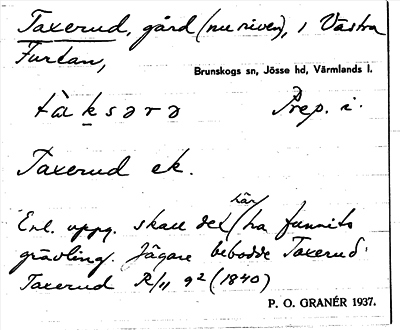 Taxerud, gård (nu riven), i Västra
Furtan,
Brunskogs sn, Jösse hd, Värmlands l.
tàksərə Prep. i.
Taxerud ek.
här
Enl. uppg. skall det ha funnits
grävling. Jägare bebodde Taxerud.
Taxerud R/11 92 (1840)
P. O. GRANÉR 1937.